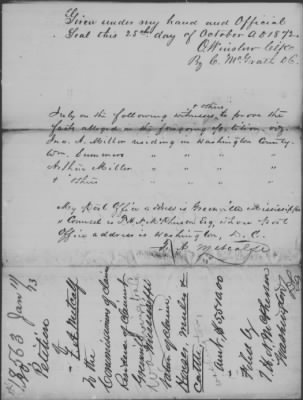 Given under my hand and Official
Seal this 25th day of October A D 1872
O Winslow Clk
By C. McGrath D.C.
& others
rely on the following witnesses to prove the
facts alleged in the foregoing petition, viz
Jno. A. Miller residing in Washington County
Wm. Summers " " " "
Arthur Miller " " " "
& others " " " "
My Post Office address is Greenville Mississippi
& Counsel is Esq. whose post
Office address is Washington, D. C.
F. A. Metcalfe
18563 Jan 17/73
Petition
of
F A Metcalf
To the
Commissioners of Claims
Residence of Claimant
Greenville
Mississippi
Nature of Claim
Horses, Mules &
Cattle
Amt. $
Filed by
Washington
D.C.